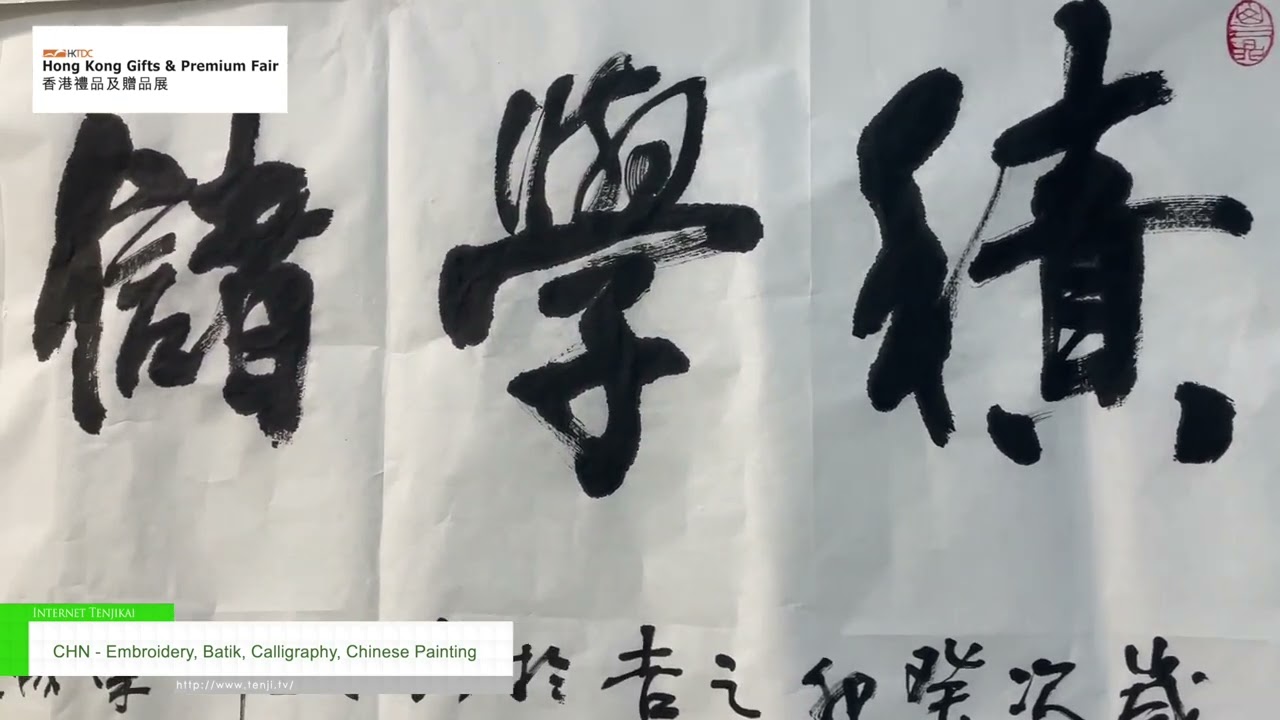 HKTDC
Hong Kong Gifts & Premium Fair
香港禮品及贈品展
積學儲
歲次癸卯之吉於
INTERNET TENJIKAI
CHN - Embroidery, Batik, Calligraphy, Chinese Painting
http://www.tenji.tv/